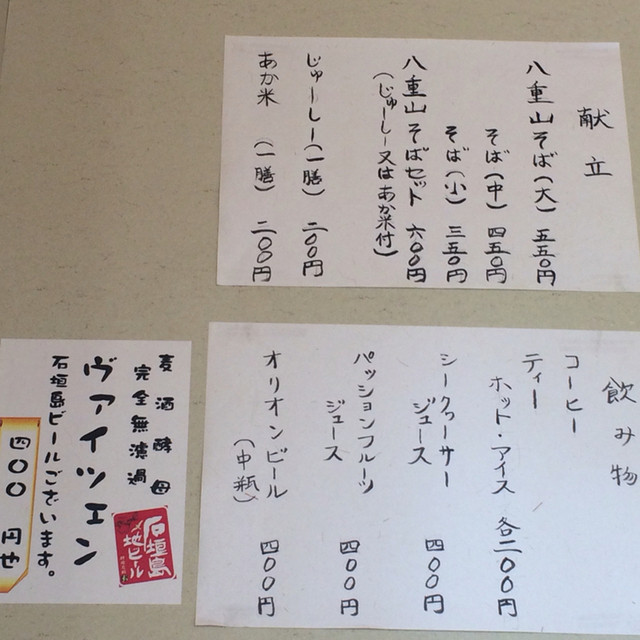 献立
八重山そば(大) 五五〇円
そば(中) 四五〇円
そば(小) 三五〇円
八重山そばセット 六〇〇円
(じゅーしー又はあか米付)
じゅーしー(一膳) 二〇〇円
あか米 (一膳) 二〇〇円
飲み物
コーヒー
ティー
ホット・アイス 各二〇〇円
シークヮーサー
ジュース 四〇〇円
パッションフルーツ
ジュース 四〇〇円
オリオンビール
(中瓶) 四〇〇円
麦酒酵母
完全無濾過
ヴァイツェン
石垣島ビールございます。
四〇〇円也
石垣島
地ビール